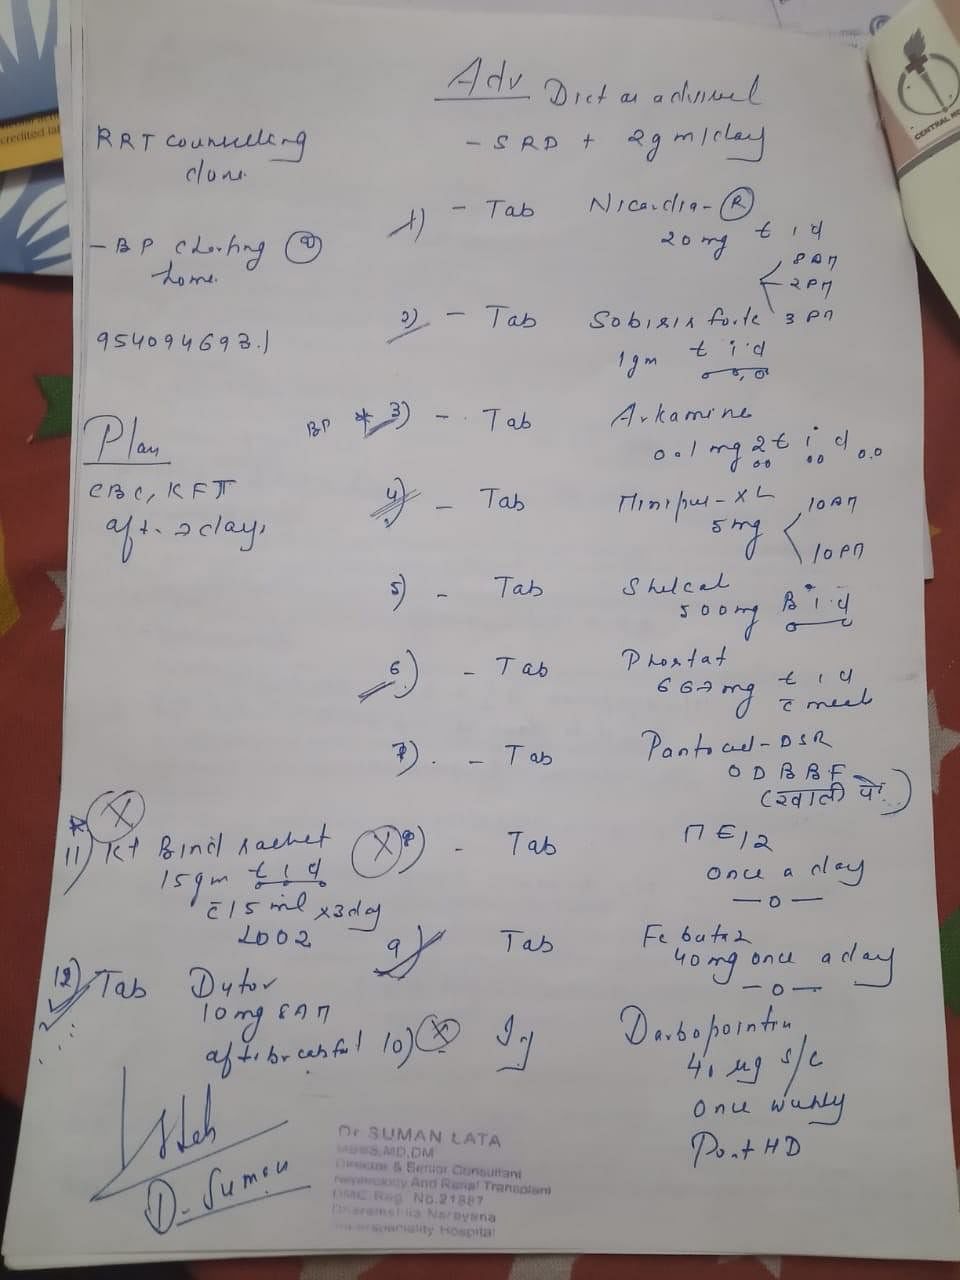 Adv
Diet as advised
- SRD + 2gm/day
RRT counselling
done.
- BP charting @
home.
954094693.1
Plan
CBC, KFT
aft. 2 days
1) - Tab Nicardia - R
20 mg t i d
8 AM
2 PM
3 PM
2) - Tab Sobisis forte
1gm t i d
BP * 3) - Tab Arkamine
0.1 mg 2 t i d
4) - Tab Minipres - XL
5 mg
10 AM
10 PM
5) - Tab Shelcal
500 mg B i d
6) - Tab Phostat
667 mg t i d
c̄ meals
7) - Tab Pantocid - DSR
OD BBF
(खाली पेट)
X 8) - Tab ME12
once a day
— o —
9) Tab Febutaz
40 mg once a day
— o —
10) X Inj Darbopointin
40 µg s/c
once weekly
Post HD
* X
11) K+ Bind sachet
15gm t i d
c̄ 15 ml x3day
12) Tab Dytor
10 mg 8 AM
after breakfast
Dr. Suman
Dr SUMAN LATA
MBBS,MD,DM
Director & Senior Consultant
Nephrology And Renal Transplant
DMC Reg. No.21887
Dharamshila Narayana
Superspeciality Hospital
credited la
CENTRAL